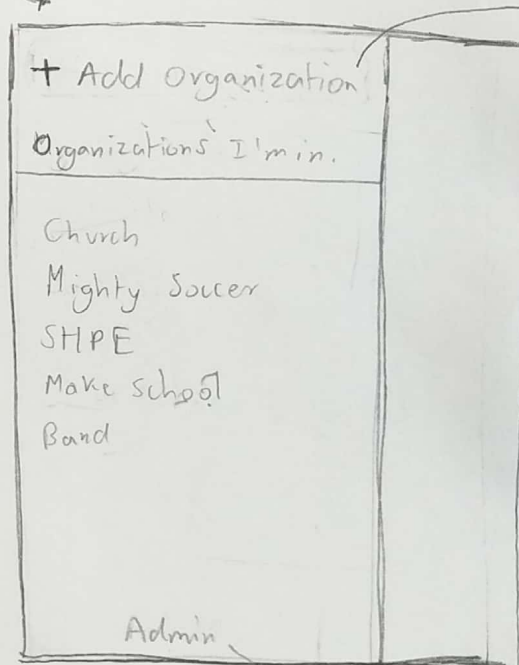 + Add Organization
Organizations I'm in.
Church
Mighty Soccer
SHPE
Make School
Band
Admin